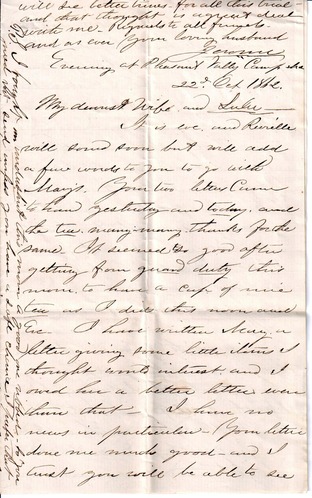 will see better times for all this trial
and that thought is a great deal
with me. Regards to all friends
and as ever Your loving husband
Jerome
Evening at Pleasant Valley Camp
22d Oct 1862.
My dearest Wife and Lulu
It is eve. and Reveille
will sound soon but will add
a few words to you to go with
Mary's. Your two letters Came
to hand yesterday and today, and
the tea, many-many thanks for the
same. It seemed so good after
getting from guard duty this
morn, to have a cup of nice
tea as I did this noon and
Eve. I have written Mary a
letter giving some little items I
thought would interest, and I
owed her a better letter even
than that - I have no
news in particular - Your letter
done me much good - and I
trust you will be able to see